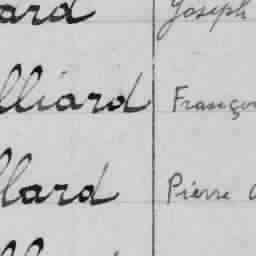 ard Joseph
lliard Franço
llard Pierre